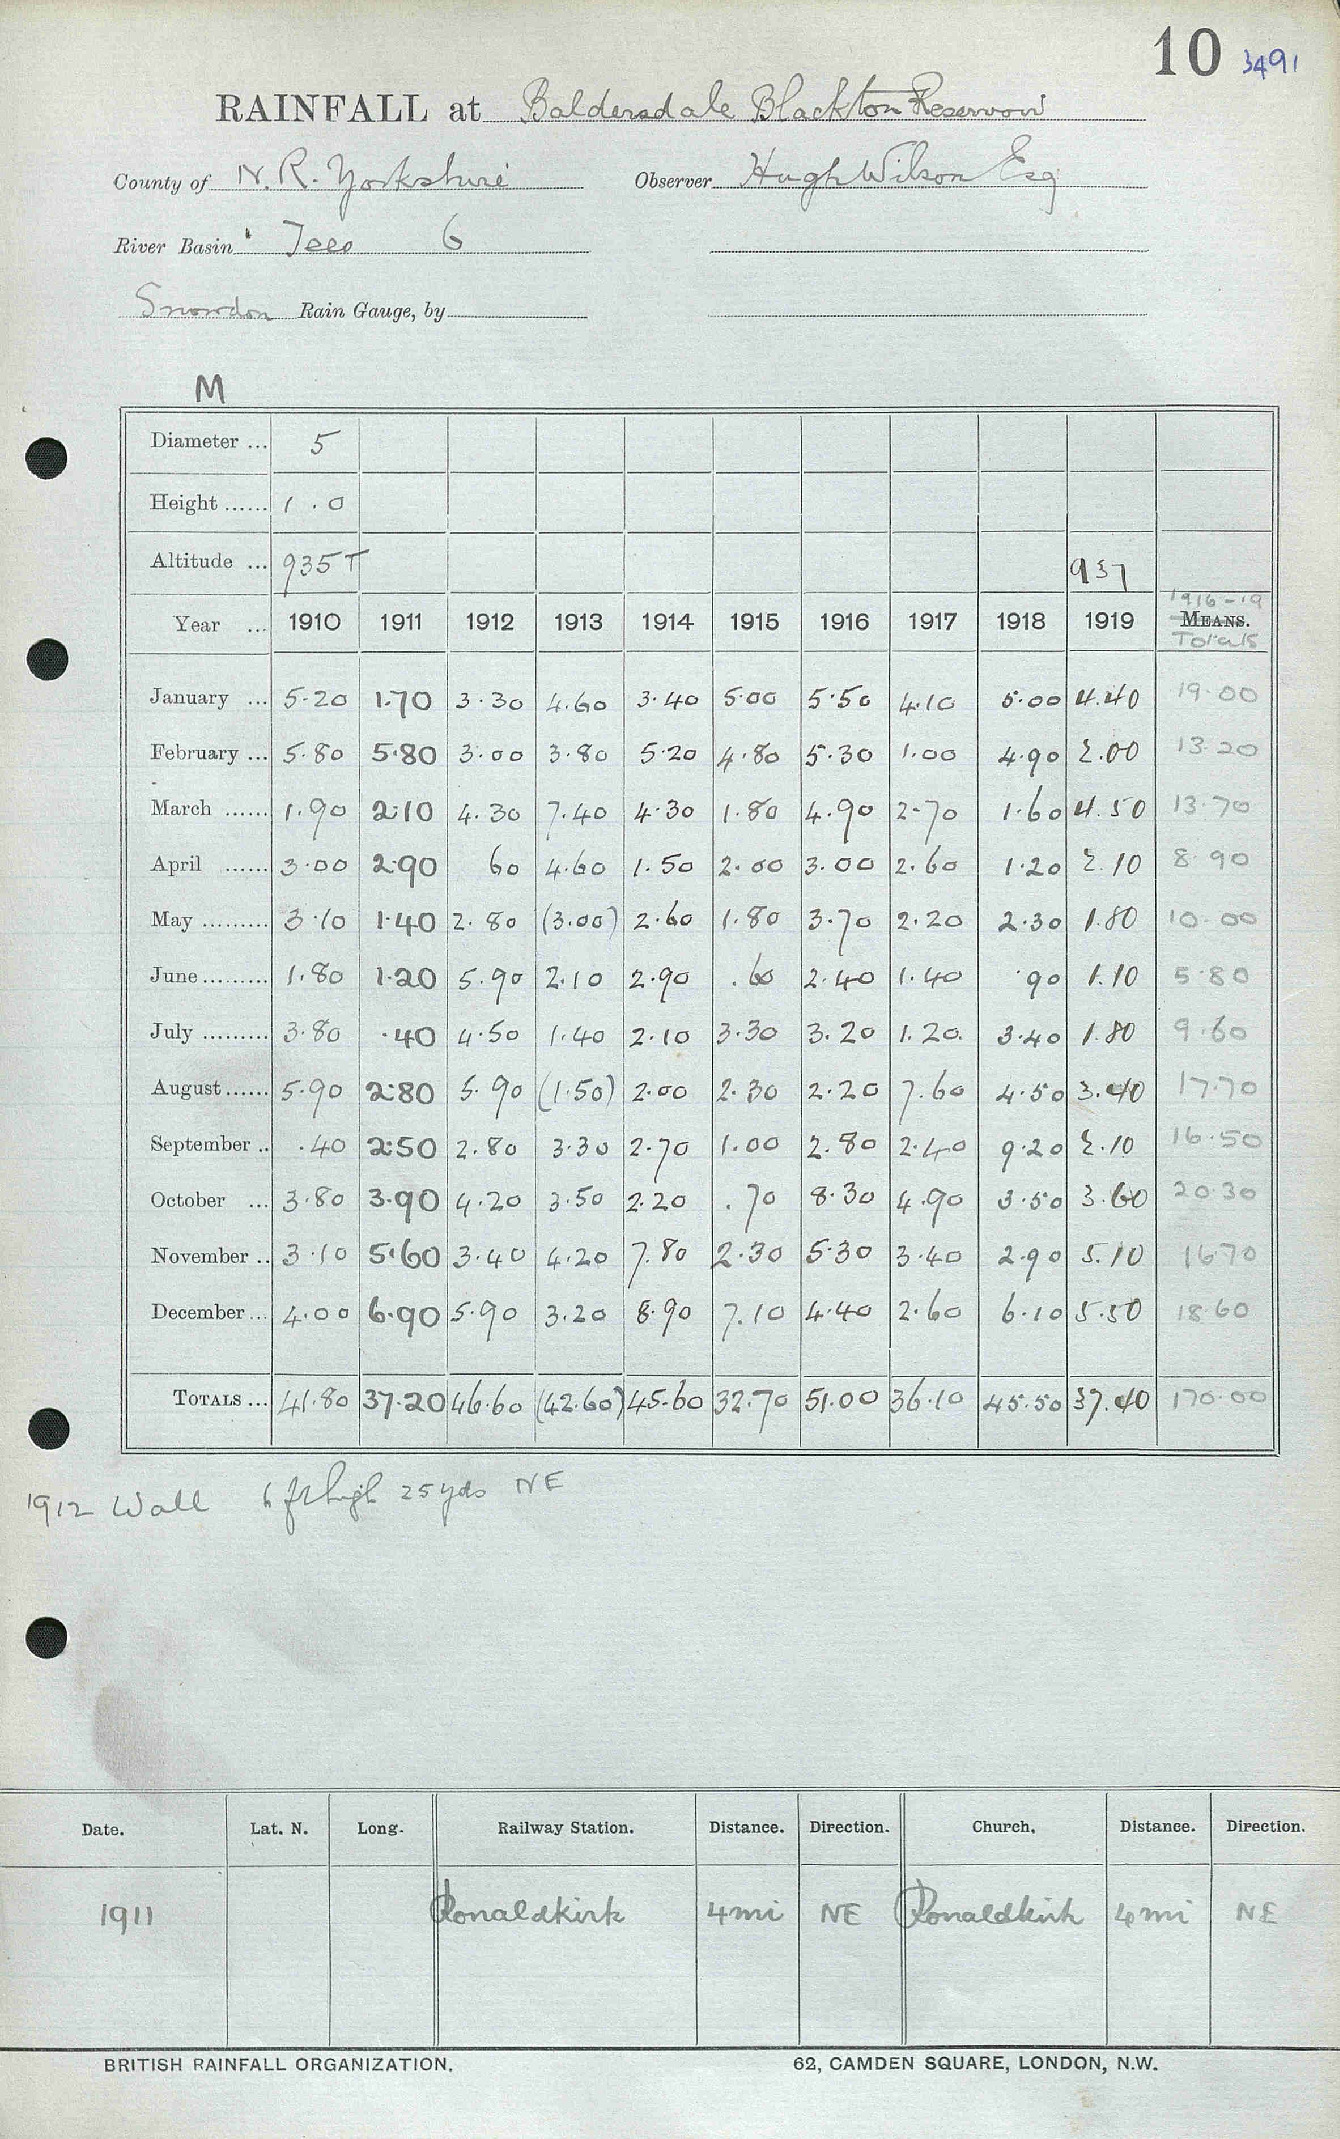 10 3491
RAINFALL at Baldersdale Blackton Reservoir
County of N. R. Yorkshire Observer Hugh Wilson Esq
River Basin Tees 6
Snowdon Rain Gauge, by
M
Diameter ... 5
Height ...... 1.0
Altitude ... 935T 937
1916-19
Year ... 1910 1911 1912 1913 1914 1915 1916 1917 1918 1919 MEANS.
Totals
January ... 5.20 1.70 3.30 4.60 3.40 5.00 5.50 4.10 5.00 4.40 19.00
February ... 5.80 5.80 3.00 3.80 5.20 4.80 5.30 1.00 4.90 2.00 13.20
March ...... 1.90 2.10 4.30 7.40 4.30 1.80 4.90 2.70 1.60 4.50 13.70
April ...... 3.00 2.90 60 4.60 1.50 2.00 3.00 2.60 1.20 2.10 8.90
May ......... 3.10 1.40 2.80 (3.00) 2.60 1.80 3.70 2.20 2.30 1.80 10.00
June ......... 1.80 1.20 5.90 2.10 2.90 .60 2.40 1.40 .90 1.10 5.80
July ......... 3.80 .40 4.50 1.40 2.10 3.30 3.20 1.20. 3.40 1.80 9.60
August ...... 5.90 2.80 5.90 (1.50) 2.00 2.30 2.20 7.60 4.50 3.40 17.70
September .. .40 2.50 2.80 3.30 2.70 1.00 2.80 2.40 9.20 2.10 16.50
October ... 3.80 3.90 4.20 3.50 2.20 .70 8.30 4.90 3.50 3.60 20.30
November .. 3.10 5.60 3.40 4.20 7.80 2.30 5.30 3.40 2.90 5.10 16.70
December ... 4.00 6.90 5.90 3.20 8.90 7.10 4.40 2.60 6.10 5.50 18.60
TOTALS ... 41.80 37.20 46.60 (42.60) 45.60 32.70 51.00 36.10 45.50 37.40 170.00
1912 Wall 6 ft high 25 yds NE
Date. Lat. N. Long. Railway Station. Distance. Direction. Church. Distance. Direction.
1911 Romaldkirk 4 mi NE Romaldkirk 4 mi NE
BRITISH RAINFALL ORGANIZATION. 62, CAMDEN SQUARE, LONDON, N.W.